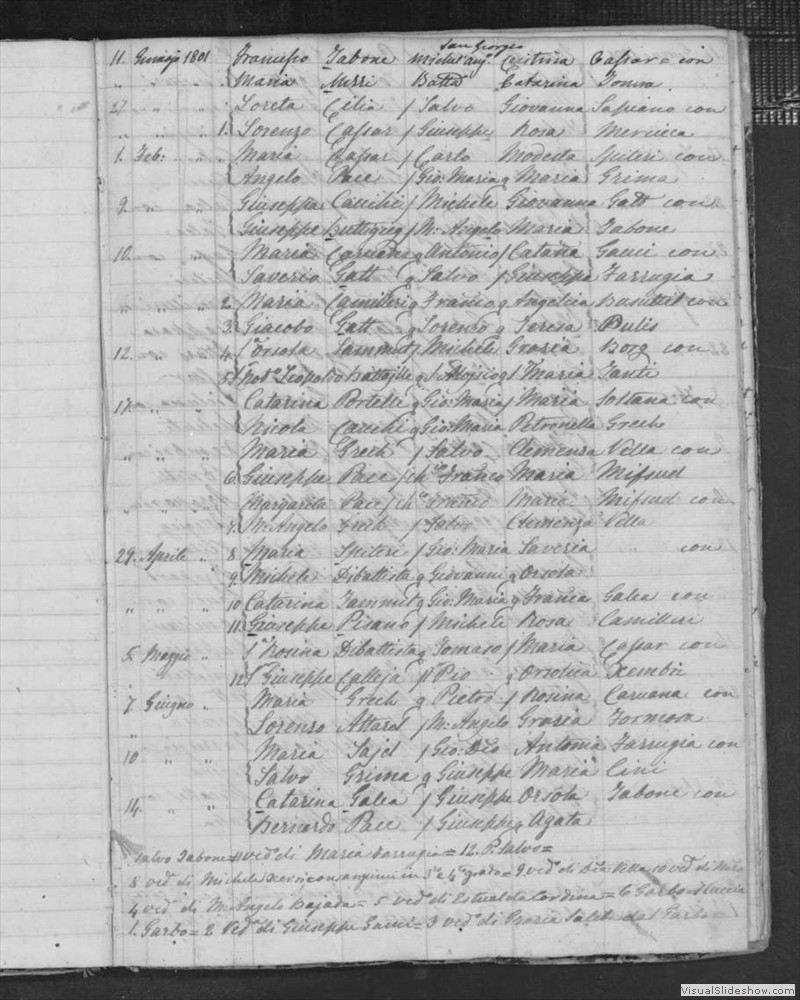 San Giorgio
11 Gennajo 1801 Francesco Zabone Michel'ang. Cristina Cassar = con
" " " Maria Mizzi Batta Catarina Tonna
27 " " Loreta Cilia / Salvo Giovanna Sapiano con
" " " 1. Lorenzo Cassar / Giuseppe Rosa Mercieca
1. Feb: " " Maria Cassar / Carlo Modesta Spiteri con
Angelo Pace / Gio: Maria q Maria Grima
9. " " Giuseppa Cauchi / Michele Giovanna Gatt con
Giuseppe Buttigieg / M: Angelo Maria Zabone
10. " " Maria Caruana q Antonio / Catarina Gauci con
Saverio Gatt q Salvo / Giuseppa Farrugia
" " " 2. Maria Camilleri q Franco q Angelica Busuttil con
3. Giacobo Gatt q Lorenzo q Teresa Bulis
12. " " 4. Orsola Sammut / Michele Grazia Borg con
5. Not.o Leopoldo Battaglie q S. Aloysio q Maria Tanti
17. " " Catarina Portelli q Gio: Maria / Maria Soltana con
Nicola Cauchi q Gio: Maria Petronella Grech
" " " Maria Grech / Salvo Clemenza Vella con
6. Giuseppe Pace / Franco Maria Mifsud
" " " Margarita Pace / Franco Maria Mifsud con
7. M: Angelo Grech / Salvo Clemenza Vella
29. Aprile " 8 Maria Spiteri / Gio: Maria Saveria " con
9. Michele Dibattista q Giovanni q Orsola
" " " 10 Catarina Zammit q Gio: Maria q Franca Galea con
11. Giuseppe Pisano / Michele Rosa Camilleri
5. Maggio " Rosina Dibattista q Tomaso / Maria Cassar con
12 Giuseppe Calleja / Pio q Orsolica Xembri
7. Giugno " Maria Grech q Pietro / Rosina Caruana con
" Lorenzo Attard / M: Angelo Grazia Formosa
10 " " Maria Sajd / Gio: Dio Antonia Farrugia con
Salvo Grima q Giuseppe Maria Cini
14. " " Catarina Galea / Giuseppe Orsola Zabone con
Bernardo Pace / Giuseppe q Agata
Salvo Zabone = 11 ved.o di Maria Farrugia = 12. P. Salvo =
8 ved. di Michele Xerri, consanguinei in 3. e 4. grado = 9 ved.o di Vella 10 ved. di
4 ved. di M: Angelo Bajada = 5 ved.o di Cordina = 6 Garbo
1. Garbo = 2 Ved.a di Giuseppe Gauci = 3 ved.o di Maria dal Garbo =
VisualSlideshow.com